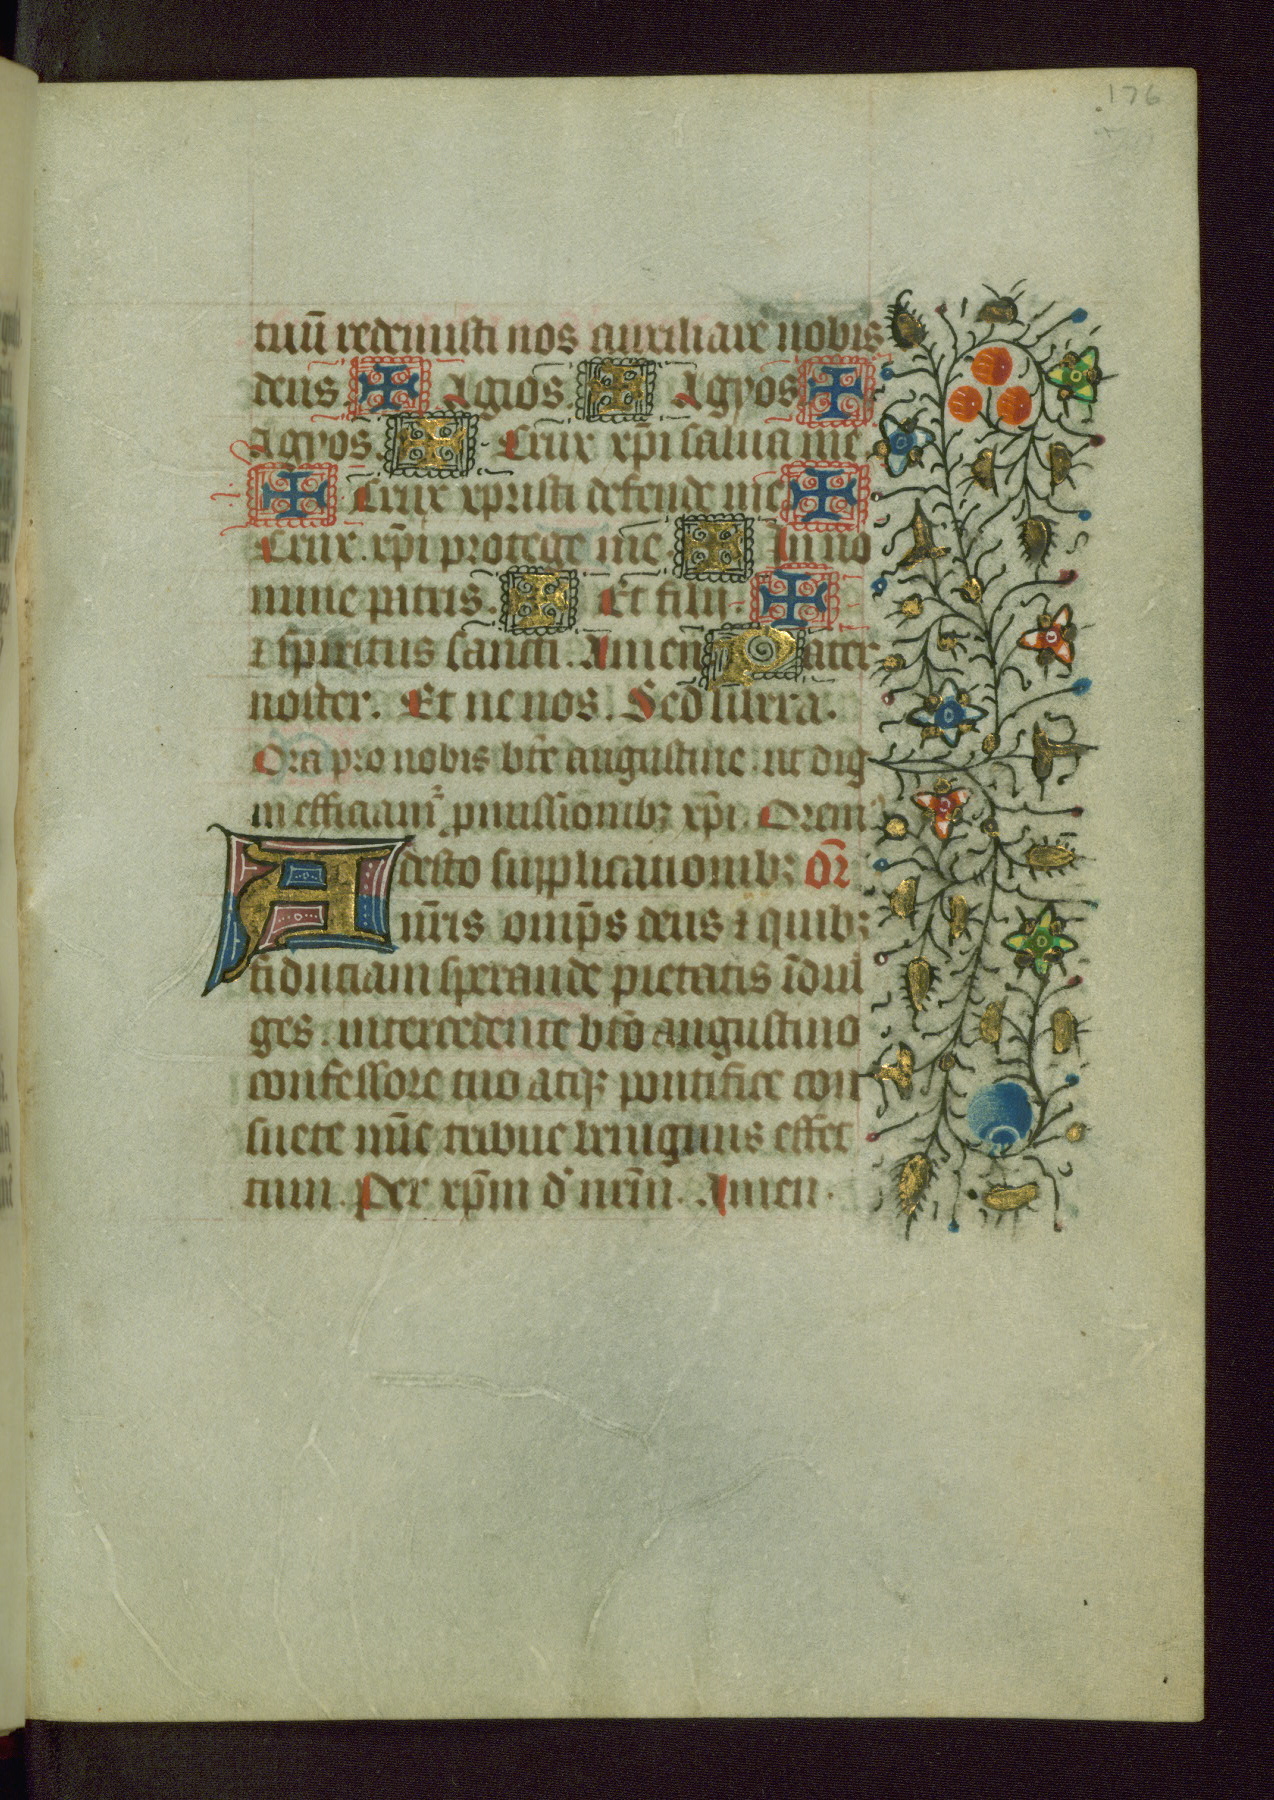 176
tuū redemisti nos auxiliare nobis
deus ✠ Agios ✠ Agyos ✠
Agyos. ✠ Crux xp̄i salua me
✠ Crux xpristi defende me ✠
Crux. xp̄i protege me. ✠ In no
mine patris. ✠ Et filii. ✠
⁊ sp̄iritus sancti. Amen Pater
noster. Et ne nos. Sed libera.
Ora pro nobis bt̄e augustine. ut dig
ni efficiam̄ p̄missionibꝫ xp̄i. Orem
Adesto supplicationibꝫ or̄
nr̄is omp̄s deus ⁊ quibꝫ
fiduciam sperande pietatis īdul
ges. intercedente bt̄o augustino
confessore tuo atqꝫ pontifice con
suete mīe tribue benignus effec
tum. Per xp̄m d' nr̄m. Amen.